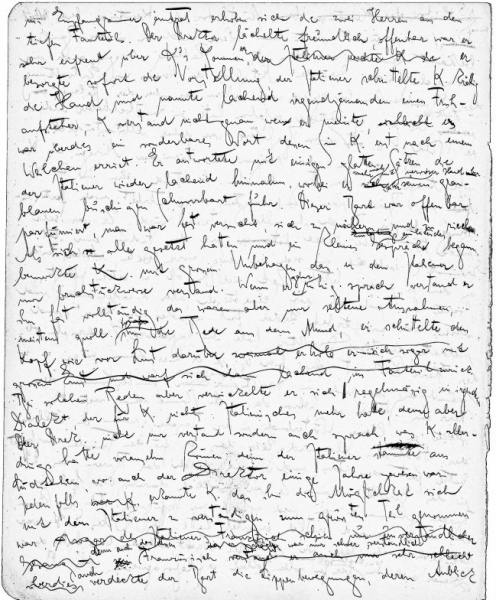 im Empfangszimmer erhoben sich die zwei Herren aus den
tiefen Fauteuils. Der Direktor lächelte freundlich offenbar war er
sehr erfreut über K's Kommen, er
besorgte sofort die Vorstellung der Italiener schüttelte K. kräftig
die Hand und nannte lachend irgendjemanden einen Früh-
aufsteher K verstand nicht genau wen er meinte, es
war überdies ein sonderbares Wort dessen Sinn K. erst nach einem
Weilchen erriet. Er antwortete mit einigen glatten Sätzen die
der Italiener wieder lachend hinnahm, wobei er mehrmals mit nervöser Hand über seinen grau-
blauen buschigen Schnurrbart fuhr. Dieser Bart war offenbar
parfümiert, man war fast versucht sich zu nähern und zu riechen
Als sich alle gesetzt hatten und ein kleines Gespräch begann
bemerkte K. mit grossem Unbehagen dass er den Italiener
nur bruchstückweise verstand. Wenn er ganz ruhig sprach verstand er
ihn fast vollständig das waren aber nur seltene Ausnahmen,
meistens quoll ihm die Rede aus dem Mund, er schüttelte den
Kopf wie vor Lust darüber
Bei solchen Reden aber verwickelte er sich regelmässig in irgend
Dialekt der für K. nichts Italienisches mehr hatte, den aber
der Direktor nicht nur verstand sondern auch sprach, was K. aller-
dings hätte voraussehn können denn der Italiener stammte aus
Süditalien wo auch der Direktor einige Jahre gewesen war
Jedenfalls erkannte K. dass ihm die Möglichkeit sich
mit dem Italiener zu verständigen zum grössten Teil genommen
war
denn auch dessen Französisch war nur schwer verständlich
auch verdeckte der Bart die Lippenbewegungen, deren Anblick